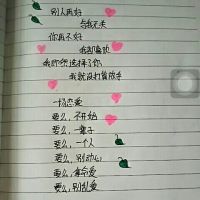 别人再好
与我无关
你再不好
我却喜欢
我即然选择了你
我就没打算放手
一场恋爱
要么，不开始
要么，一辈子
要么，一个人
要么，别动心
要么，拿命爱
要么，别乱爱